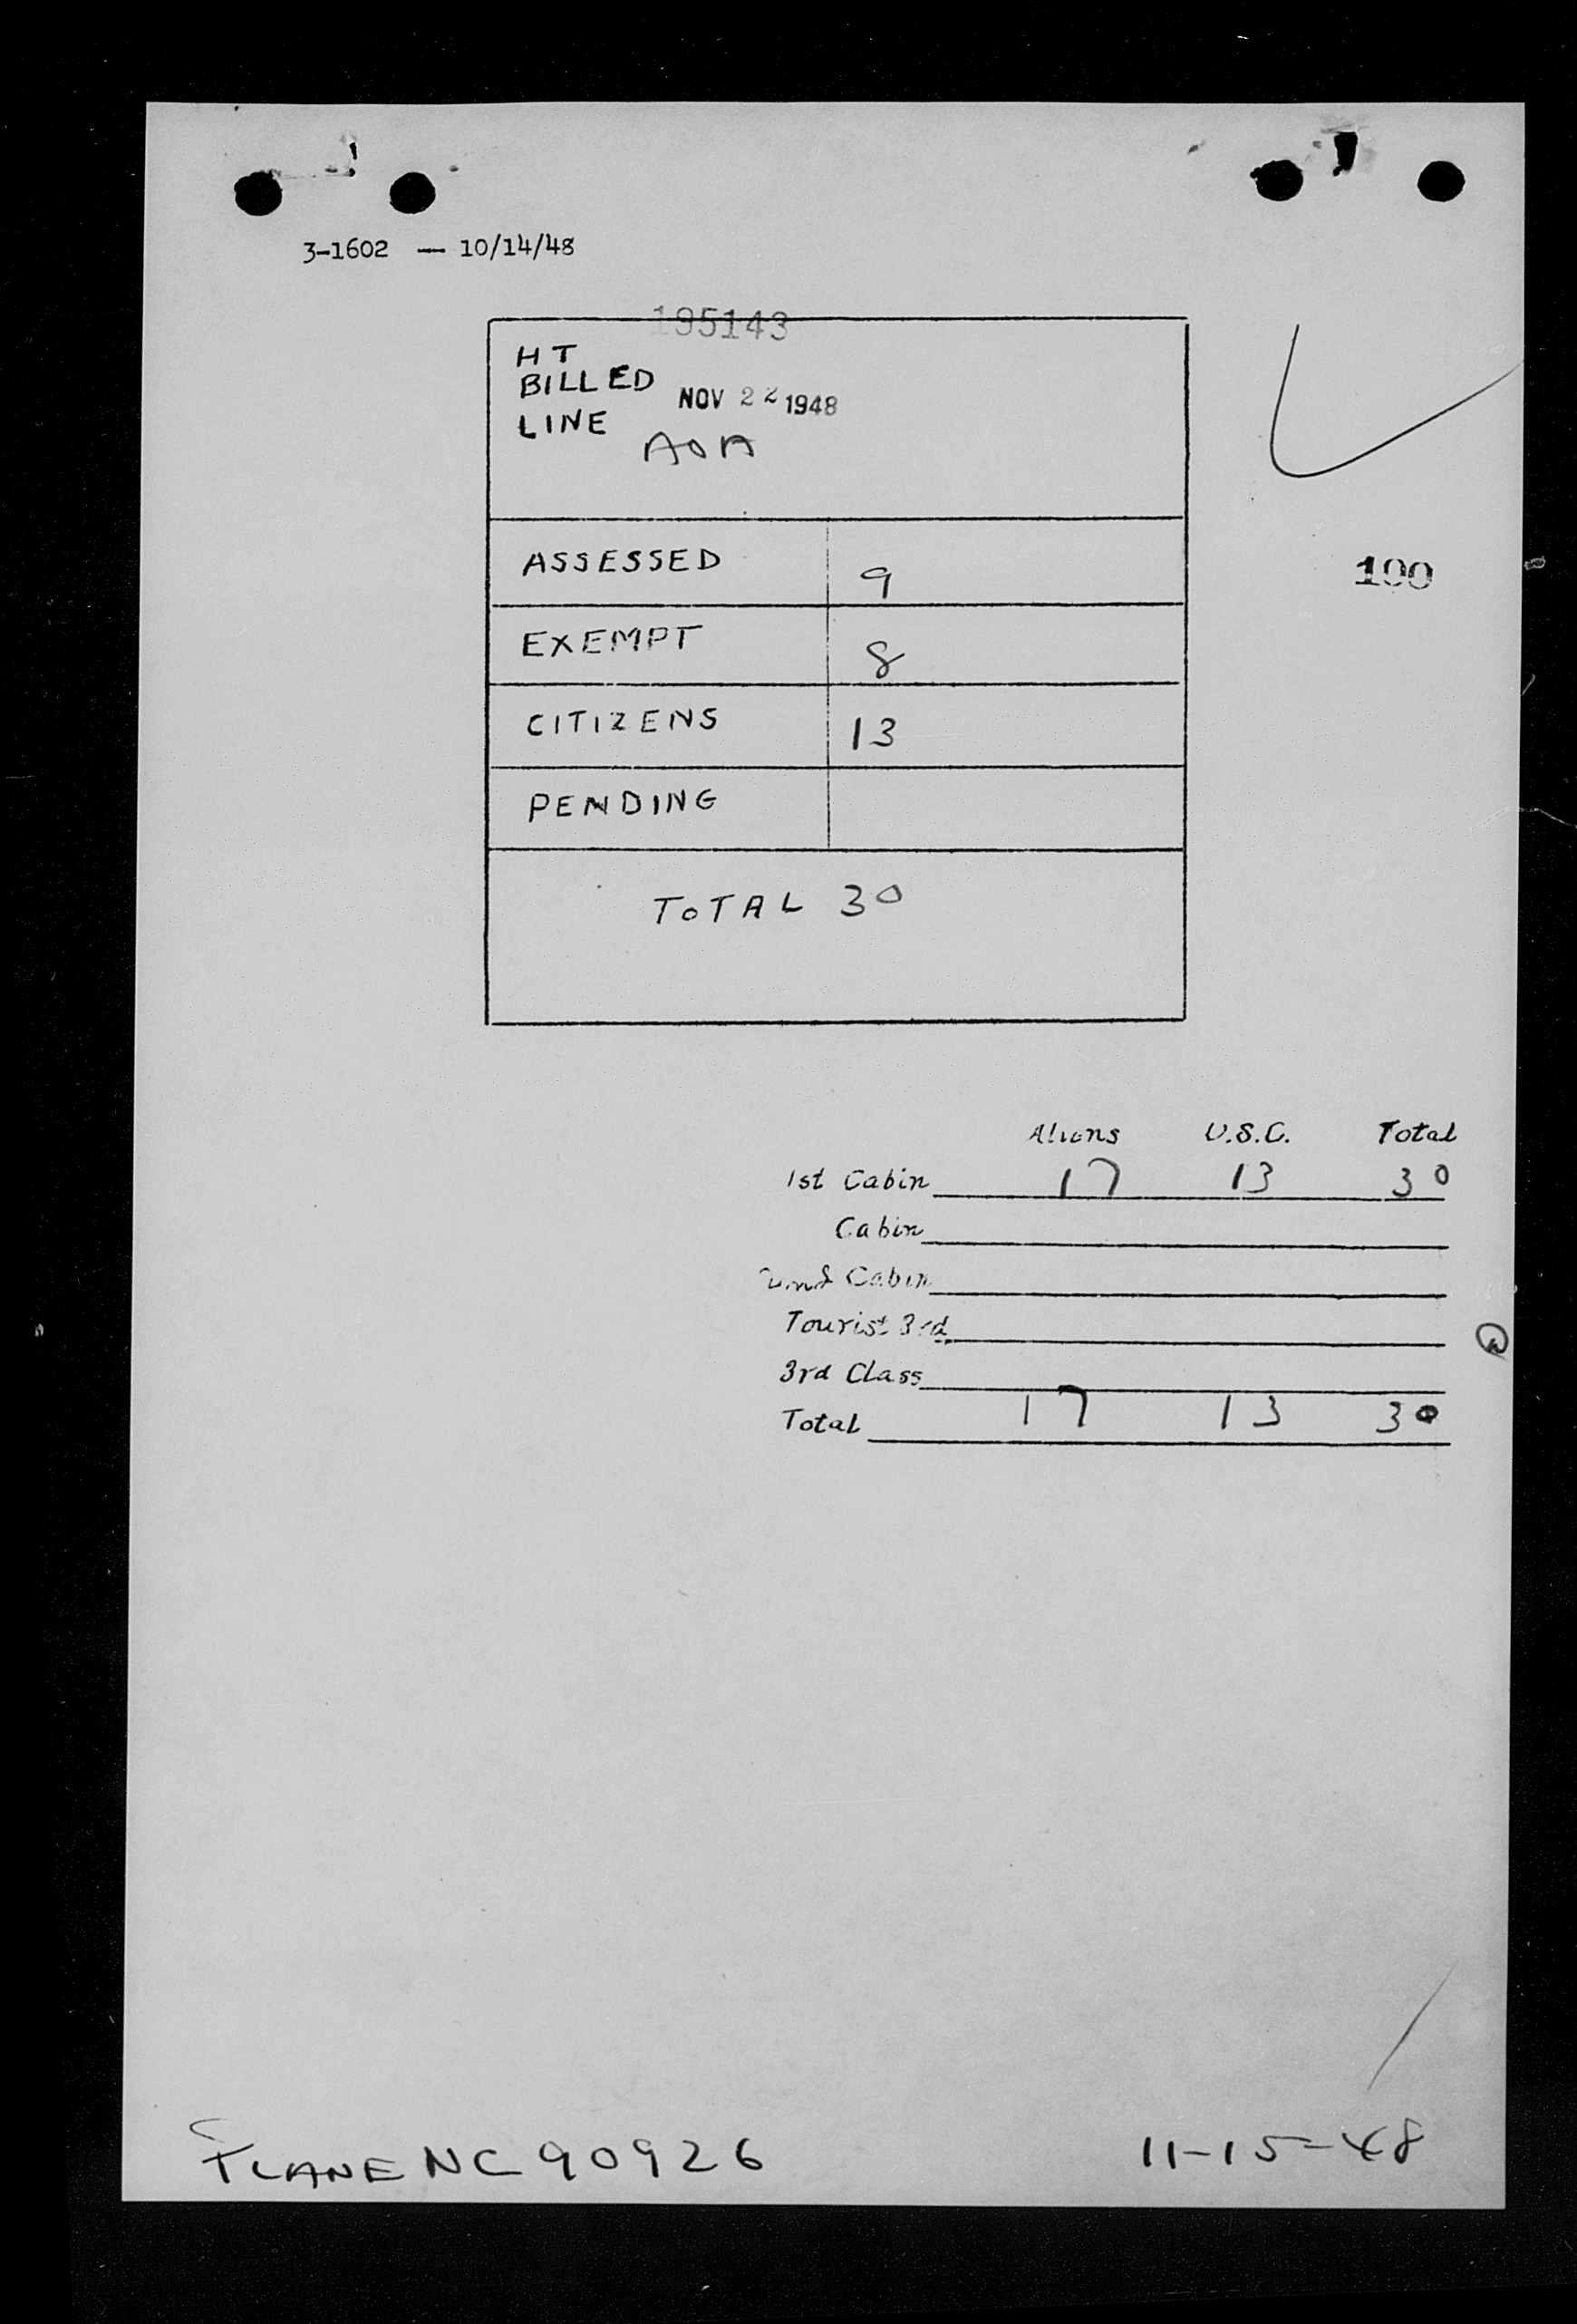 3-1602 — 10/14/48
195143
HT
BILLED NOV 22 1948
LINE AOA
ASSESSED 9
190
EXEMPT 8
CITIZENS 13
PENDING
TOTAL 30
Aliens U.S.C. Total
1st Cabin 17 13 30
Cabin
Cabin
Tourist 3rd
3rd Class
Total 17 13 30
PLANE NC 90926 11-15-48